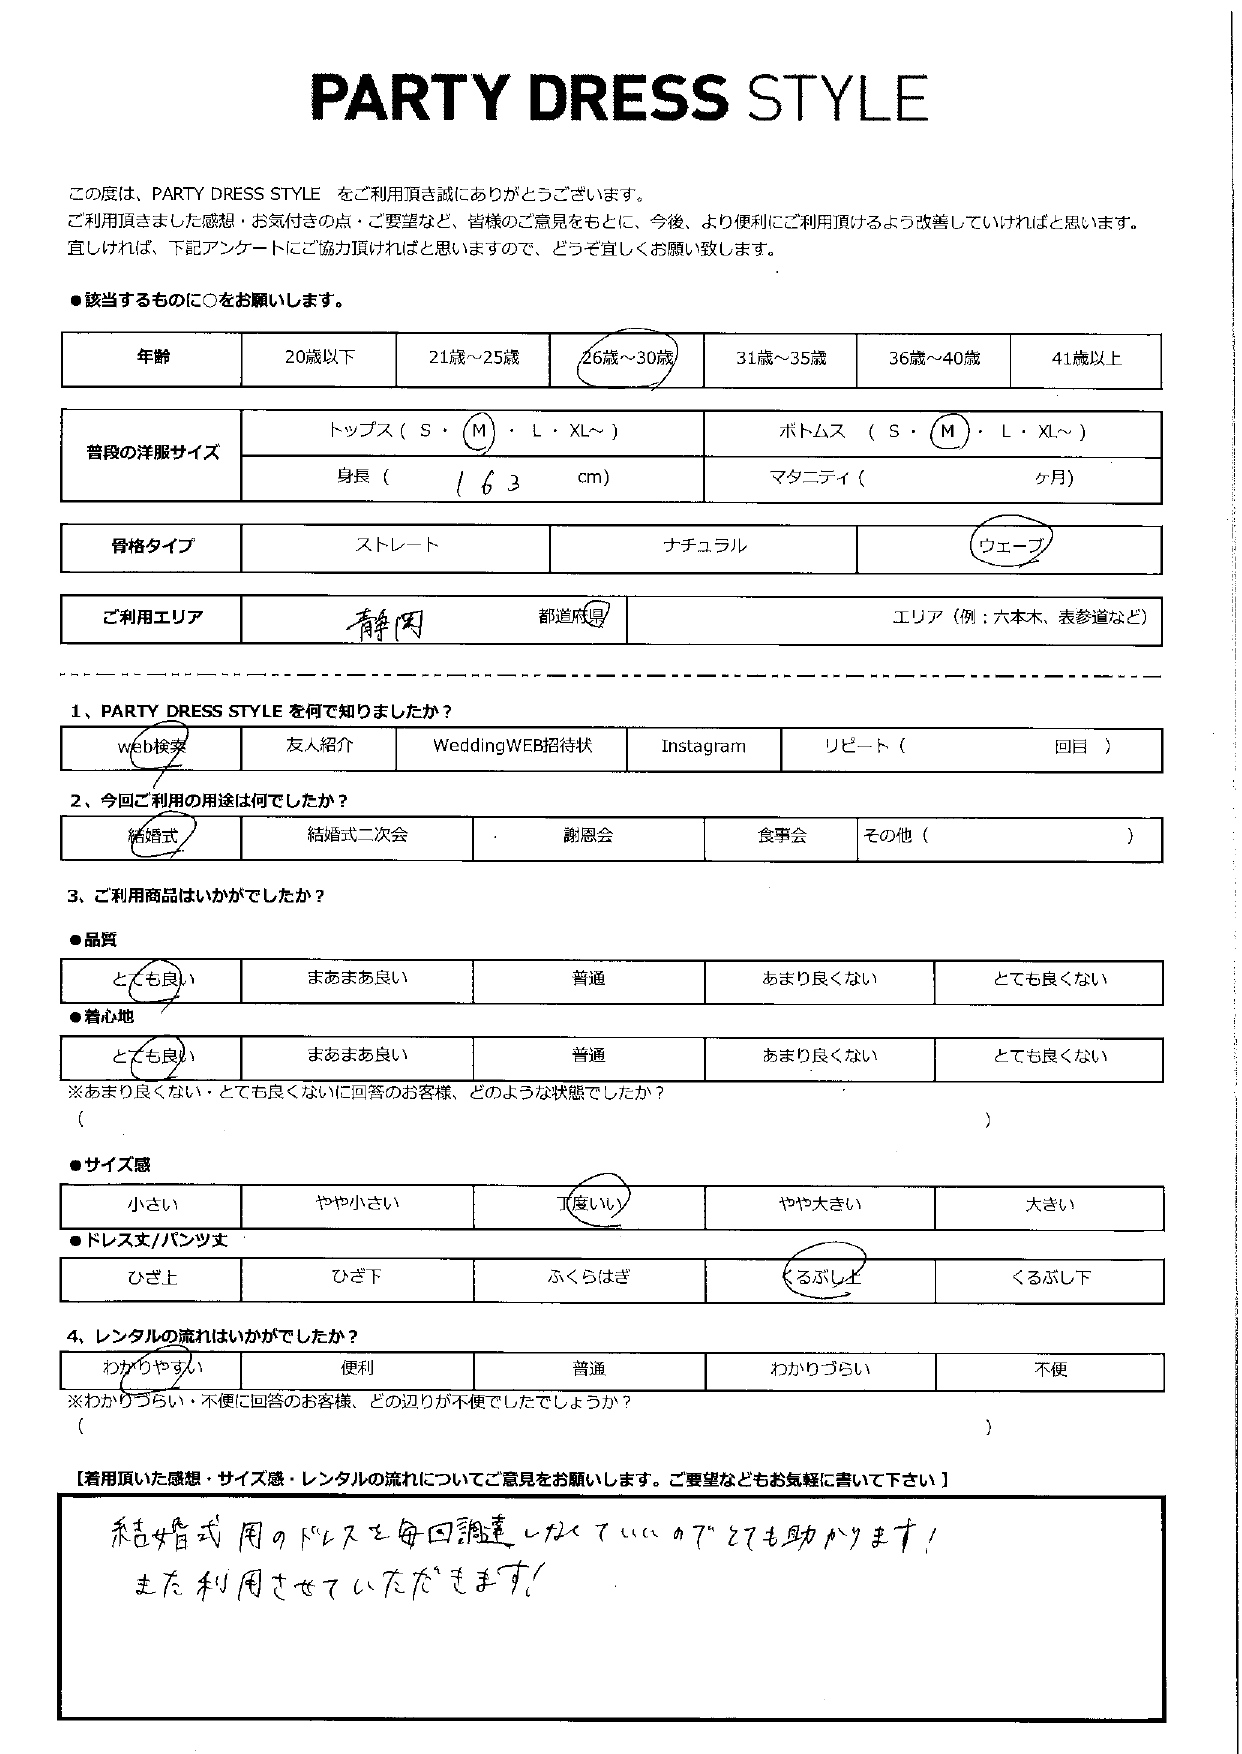 PARTY DRESS STYLE
この度は、PARTY DRESS STYLE をご利用頂き誠にありがとうございます。
ご利用頂きました感想・お気付きの点・ご要望など、皆様のご意見をもとに、今後、より便利にご利用頂けるよう改善していければと思います。
宜しければ、下記アンケートにご協力頂ければと思いますので、どうぞ宜しくお願い致します。
●該当するものに○をお願いします。
年齢 20歳以下 21歳～25歳 26歳～30歳 31歳～35歳 36歳～40歳 41歳以上
普段の洋服サイズ
トップス ( S ・ M ・ L ・ XL～ ) ボトムス ( S ・ M ・ L ・ XL～ )
身長 ( 163 cm) マタニティ ( ヶ月)
骨格タイプ ストレート ナチュラル ウェーブ
ご利用エリア 静岡 都道府県 エリア（例：六本木、表参道など）
1、PARTY DRESS STYLE を何で知りましたか？
web検索 友人紹介 WeddingWEB招待状 Instagram リピート ( 回目 )
2、今回ご利用の用途は何でしたか？
結婚式 結婚式二次会 謝恩会 食事会 その他 ( )
3、ご利用商品はいかがでしたか？
●品質
とても良い まあまあ良い 普通 あまり良くない とても良くない
●着心地
とても良い まあまあ良い 普通 あまり良くない とても良くない
※あまり良くない・とても良くないに回答のお客様、どのような状態でしたか？
( )
●サイズ感
小さい やや小さい 丁度いい やや大きい 大きい
●ドレス丈/パンツ丈
ひざ上 ひざ下 ふくらはぎ くるぶし上 くるぶし下
4、レンタルの流れはいかがでしたか？
わかりやすい 便利 普通 わかりづらい 不便
※わかりづらい・不便に回答のお客様、どの辺りが不便でしたでしょうか？
( )
【着用頂いた感想・サイズ感・レンタルの流れについてご意見をお願いします。ご要望などもお気軽に書いて下さい 】
結婚式用のドレスを毎回調達しなくていいのでとても助かります！
また利用させていただきます！